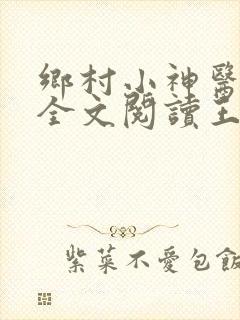 鄉村小神醫
全文閱讀王
紫菜不愛包飯